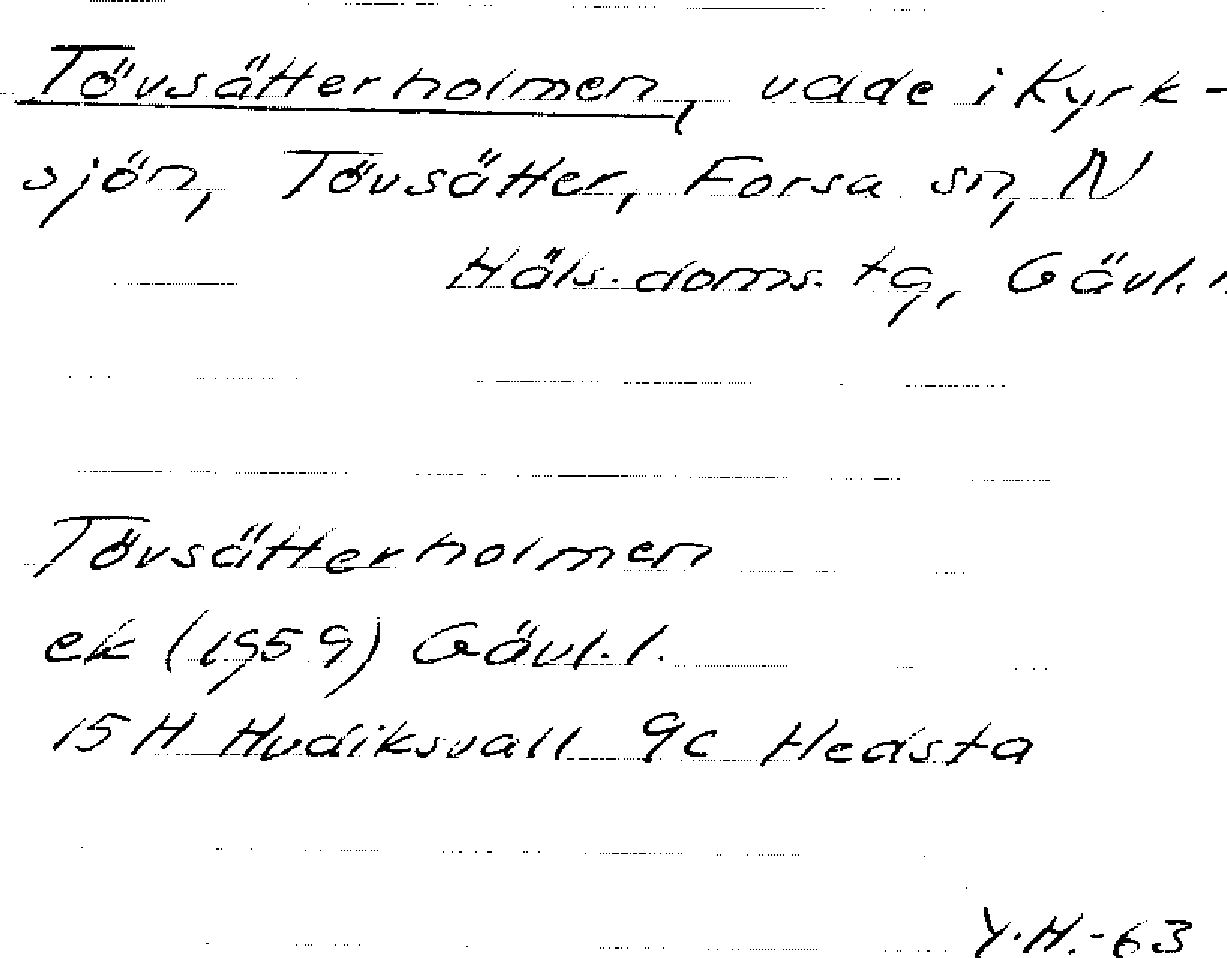 Tövsätterholmen, udde i Kyrk-
sjön, Tövsätter, Forsa sn, N
Häls. doms. tg, Gävl. l.
Tövsätterholmen
ek (1959) Gävl. l.
15 H Hudiksvall 9c Hedsta
Y.H.-63